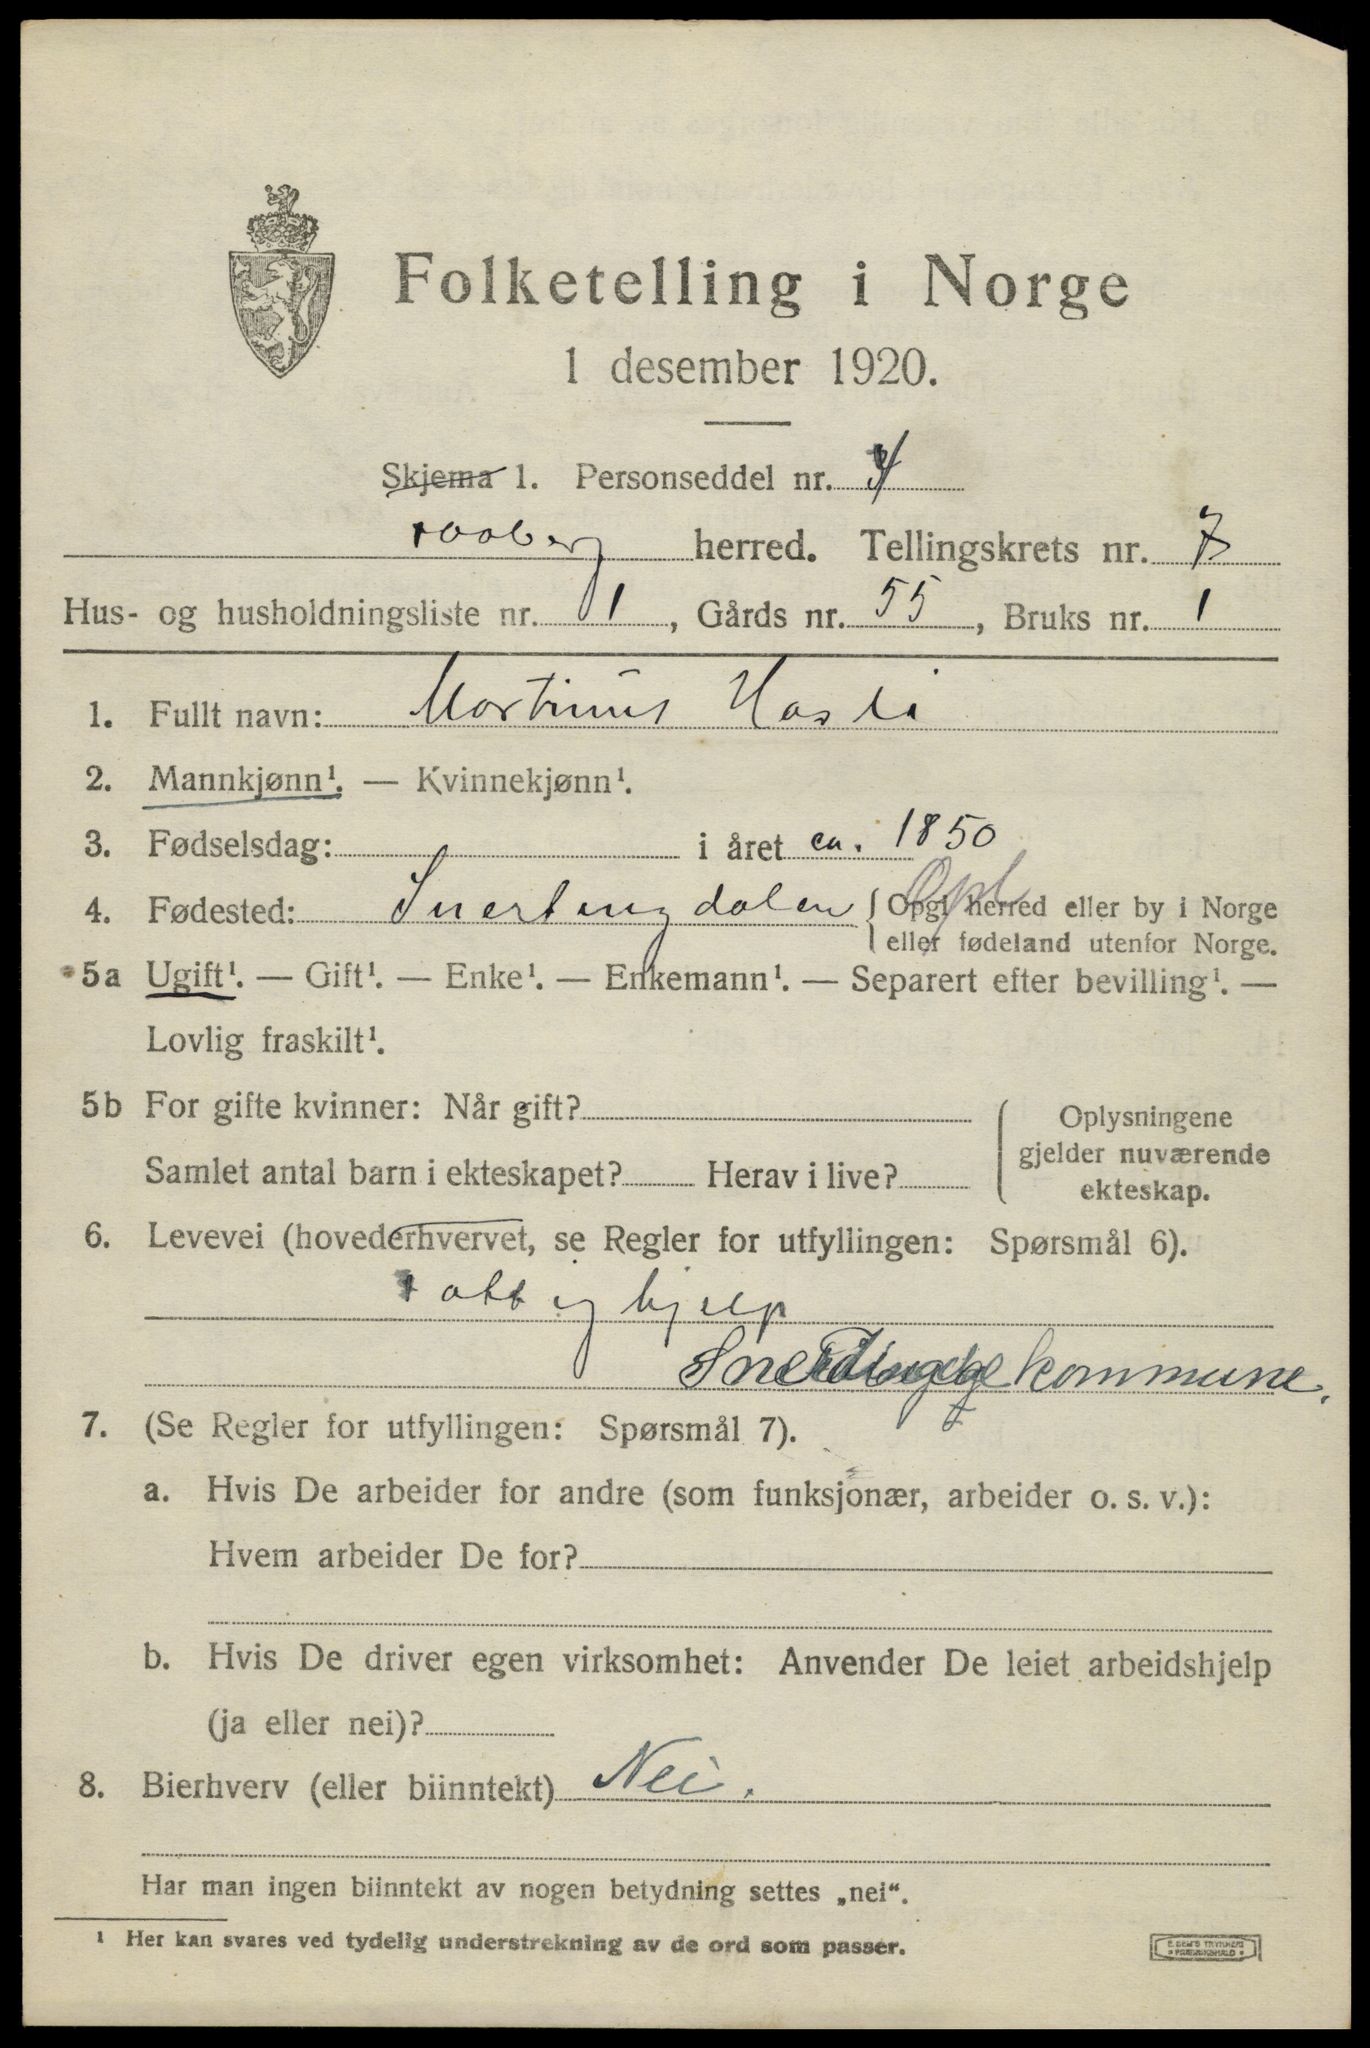 Folketelling i Norge
1 desember 1920.
Skjema 1. Personseddel nr. 4
Faaberg herred. Tellingskrets nr. 7
Hus- og husholdningsliste nr. 1, Gårds nr. 55, Bruks nr. 1
1. Fullt navn: Martinus Hasli
2. Mannkjønn¹. — Kvinnekjønn¹.
3. Fødselsdag: i året ca. 1850
4. Fødested: Snertingdalen Opl {Opgi herred eller by i Norge
eller fødeland utenfor Norge.
5a Ugift¹. — Gift¹. — Enke¹. — Enkemann¹. — Separert efter bevilling¹. —
Lovlig fraskilt¹.
5b For gifte kvinner: Når gift?
Samlet antal barn i ekteskapet? Herav i live?
Oplysningene
gjelder nuværende
ekteskap.
6. Levevei (hovederhvervet, se Regler for utfyllingen: Spørsmål 6).
Fattighjelp
kommune.
7. (Se Regler for utfyllingen: Spørsmål 7).
a. Hvis De arbeider for andre (som funksjonær, arbeider o. s. v.):
Hvem arbeider De for?
b. Hvis De driver egen virksomhet: Anvender De leiet arbeidshjelp
(ja eller nei)?
8. Bierhverv (eller biinntekt) Nei.
Har man ingen biinntekt av nogen betydning settes „nei“.
¹ Her kan svares ved tydelig understrekning av de ord som passer.